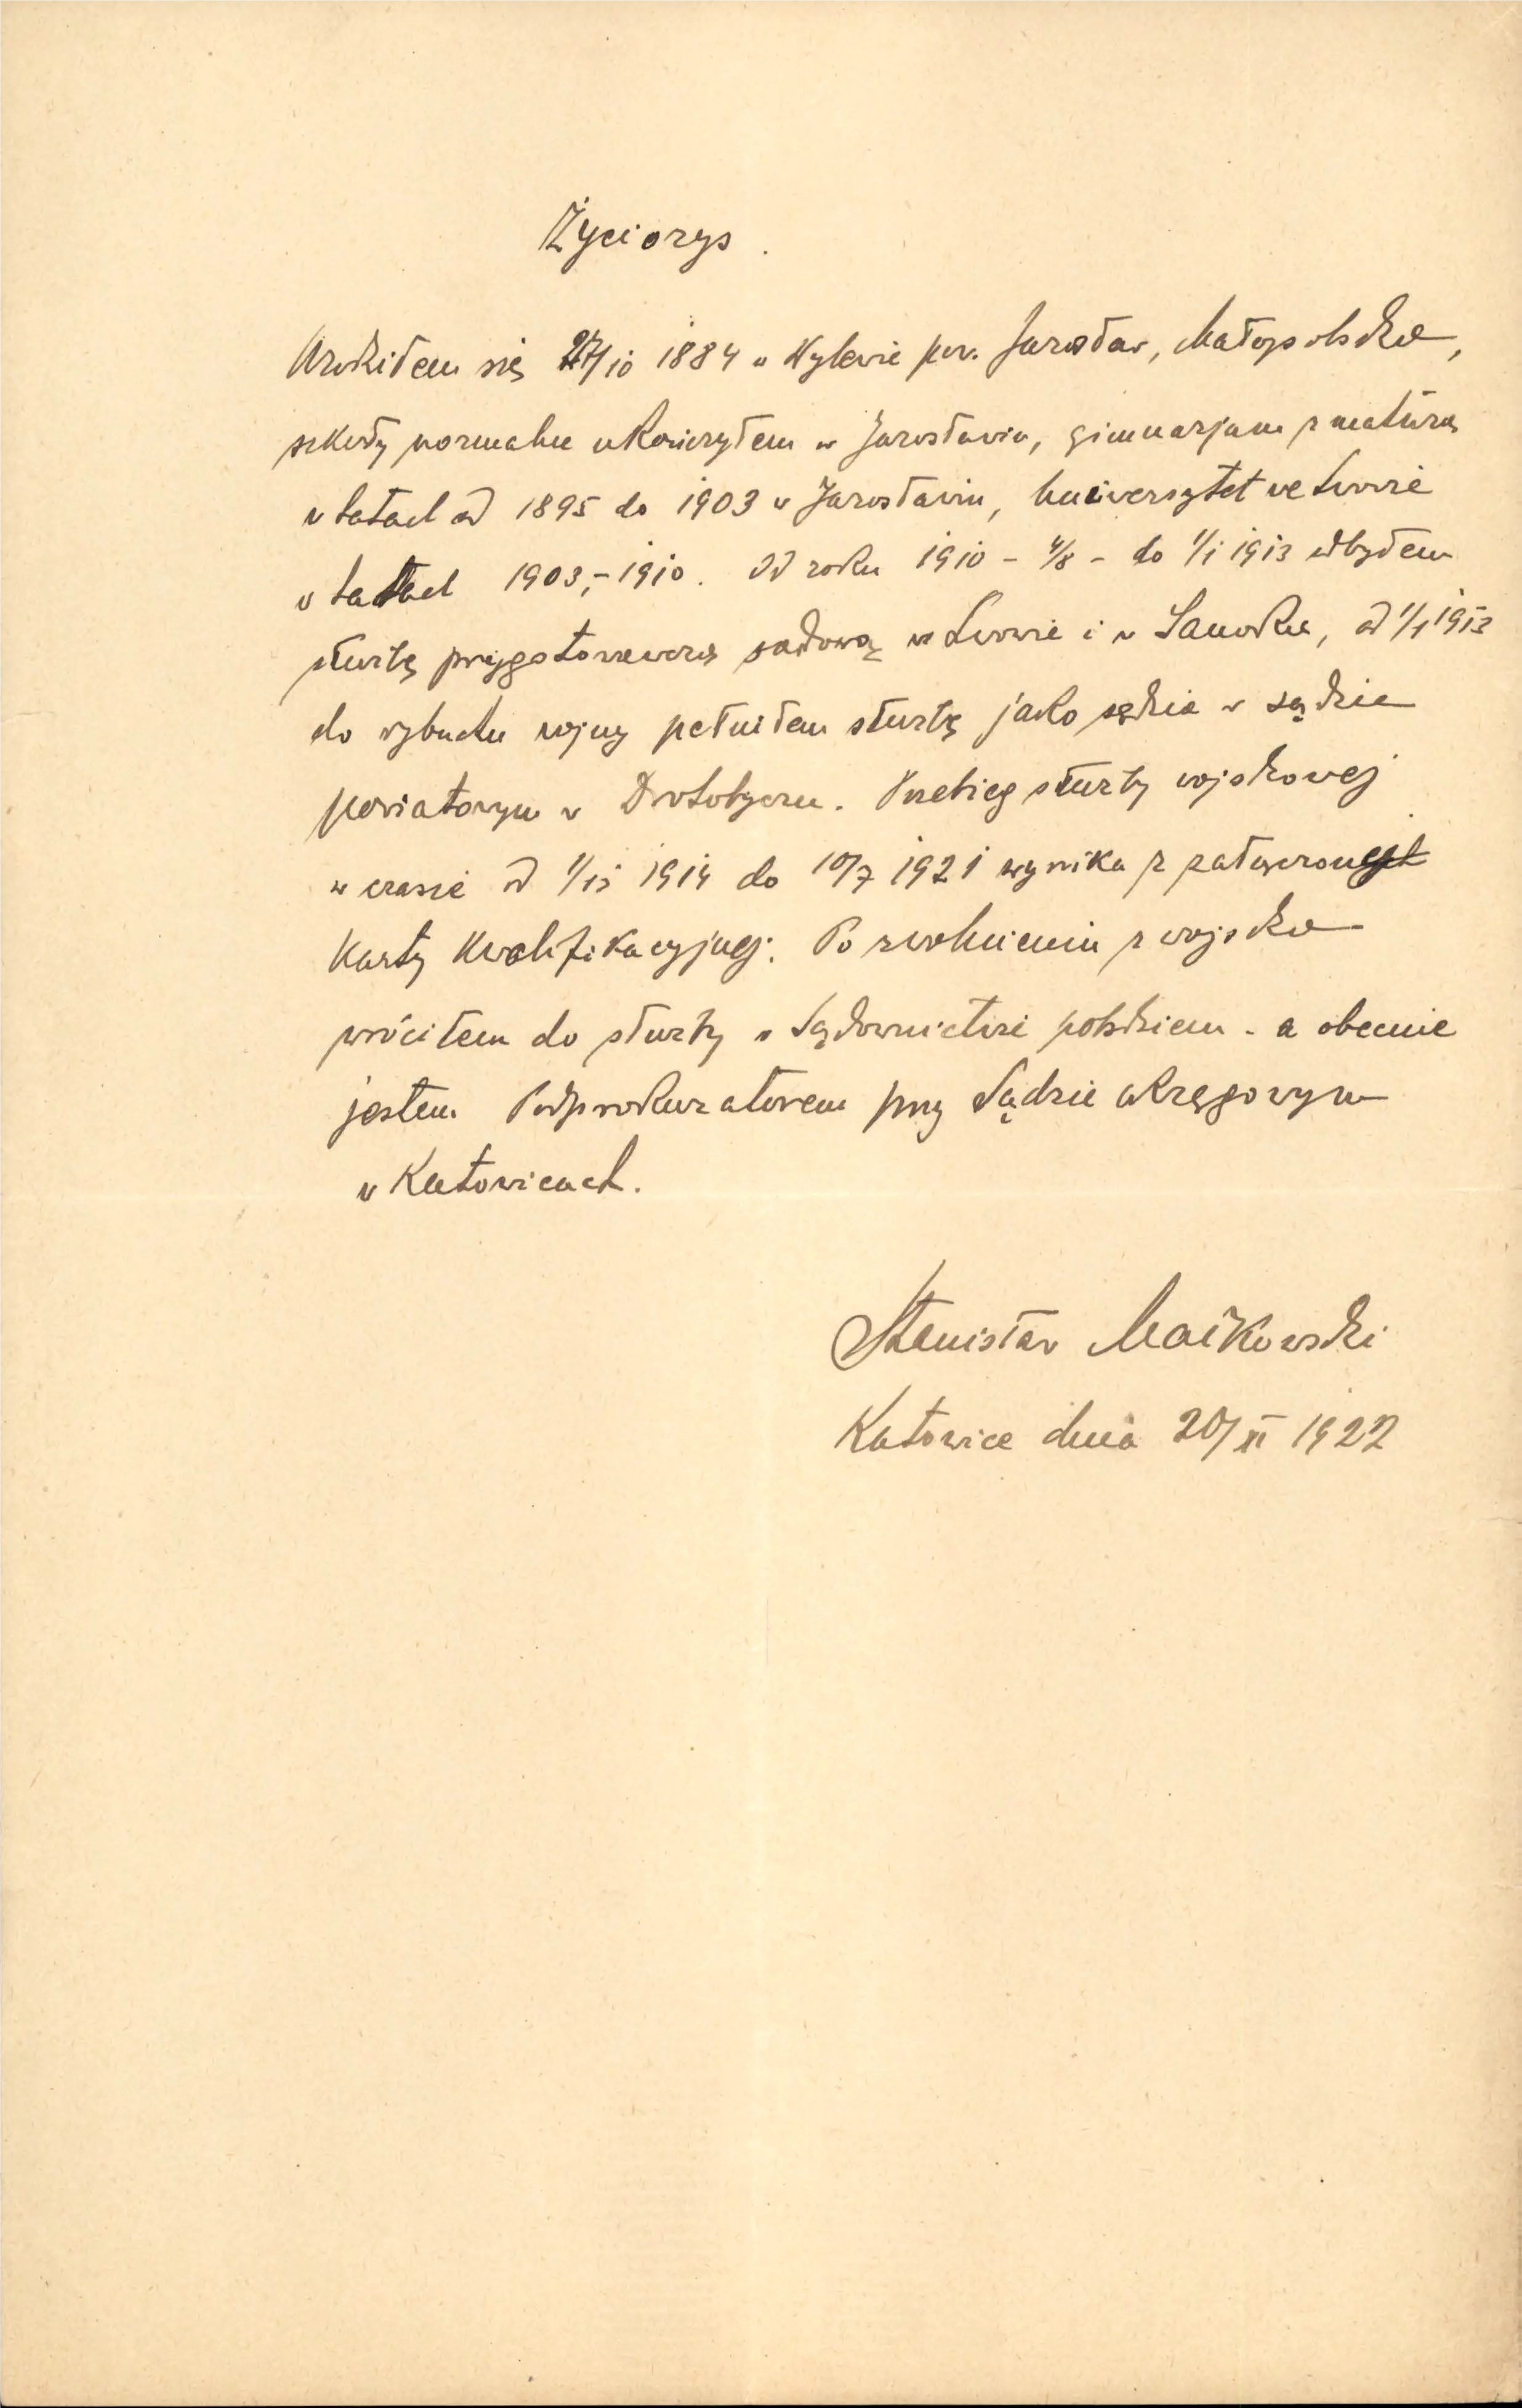 Życiorys.
Urodziłem się 27/10 1884 w Wylewie pow. Jarosław, Małopolska,
szkoły normalne ukończyłem w Jarosławiu, gimnazjum z maturą
w latach od 1895 do 1903 w Jarosławiu, Uniwersytet we Lwowie
w latach 1903,-1910. Od roku 1910 - 4/8 - do 1/1 1913 odbyłem
służbę przygotowawczą sądową we Lwowie i w Sanoku, od 1/1 1913
do wybuchu wojny pełniłem służbę jako sędzia w sądzie
powiatowym w Drohobyczu. Przebieg służby wojskowej
w czasie od 1/ 1914 do 10/7 1921 wynika z załączonej
Karty Kwalifikacyjnej. Po zwolnieniu z wojska
wróciłem do służby w Sądownictwie polskiem - a obecnie
jestem Podprokuratorem przy Sądzie okręgowym
w Katowicach.
Stanisław Maikowski
Katowice dnia 20/XI 1922